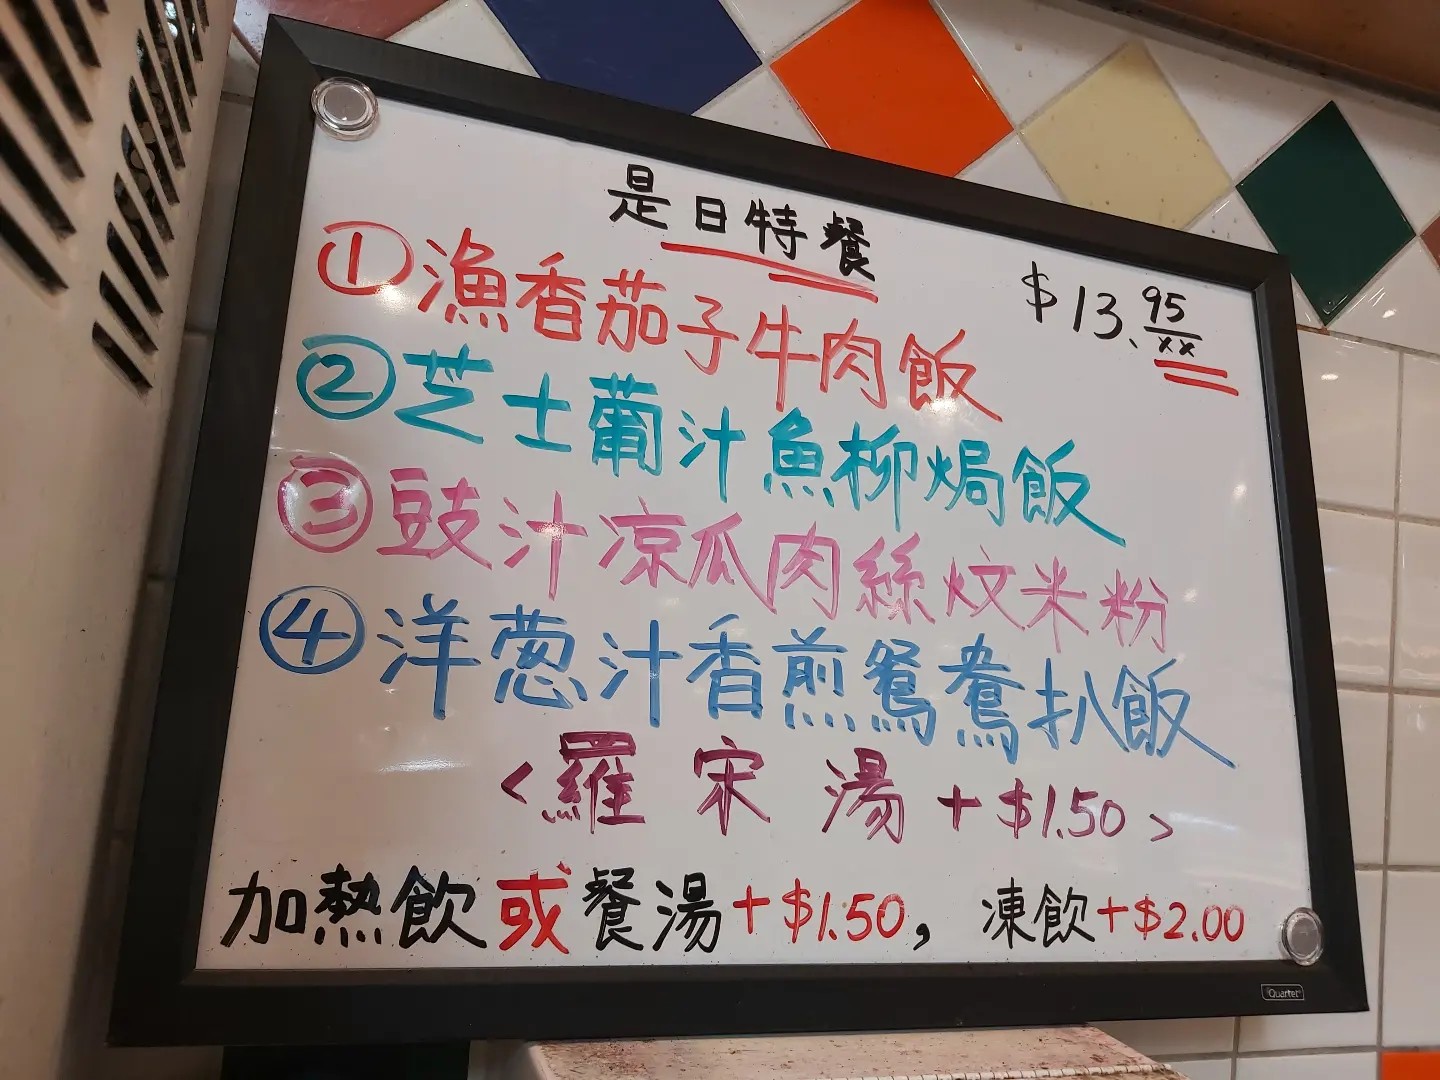 是日特餐
$13.95/xx
①漁香茄子牛肉飯
②芝士葡汁魚柳焗飯
③豉汁凉瓜肉絲炆米粉
④洋葱汁香煎鴛鴦扒飯
<羅宋湯+$1.50>
加熱飲或餐湯+$1.50，凍飲+$2.00
Quartet